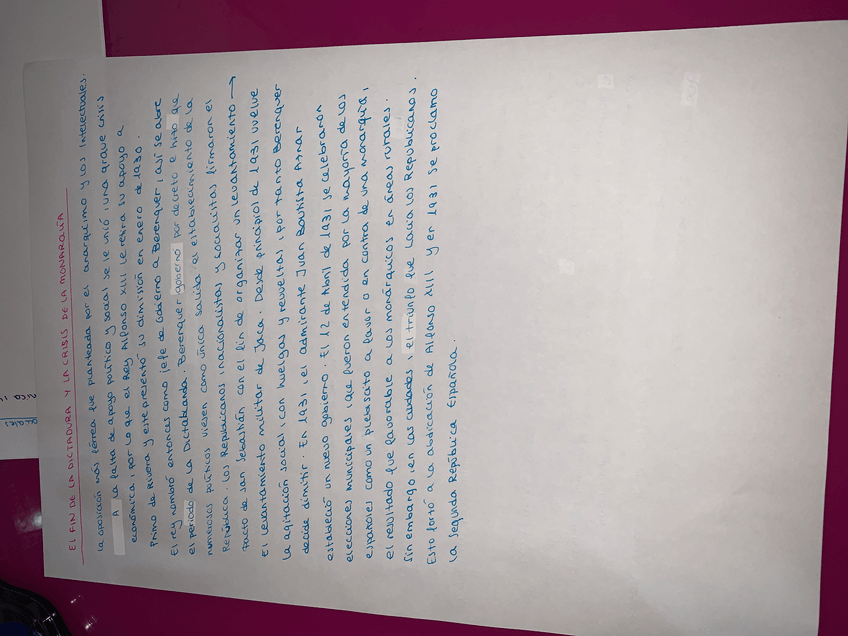 EL FIN DE LA DICTADURA Y LA CRISIS DE LA MONARQUÍA
La oposición más férrea fue planteada por el anarquimo y los intelectuales.
A la falta de apoyo político y social se le unió, una grave crisis
económica, por lo que el Rey Alfonso XIII le retira su apoyo a
Primo de Rivera y este presentó su dimisión en enero de 1930.
El rey nombró entonces como jefe de Gobierno a Berenguer, así se abre
el período de la Dictablanda. Berenguer gobernó por decreto e hizo que
numerosos políticos viesen como única salida el establecimiento de la
República. Los Republicanos, nacionalistas y socialistas firmaron el
Pacto de San Sebastián con el fin de organizar un levantamiento →
El levantamiento militar de Jaca. Desde principios de 1931 vuelve
la agitación social, con huelgas y revueltas, por tanto Berenguer
decide dimitir. En 1931, el admirante Juan Bautista Aznar
estableció un nuevo gobierno. El 12 de Abril de 1931 se celebraron
elecciones municipales, que fueron entendida por la mayoría de los
españoles como un plebiscito a favor o en contra de una monarquía,
el resultado fue favorable a los monárquicos en áreas rurales.
Sin embargo, en las ciudades, el triunfo fue hacia los Republicanos.
Esto forzó a la abdicación de Alfonso XIII y en 1931 se proclamo
la Segunda República Española.